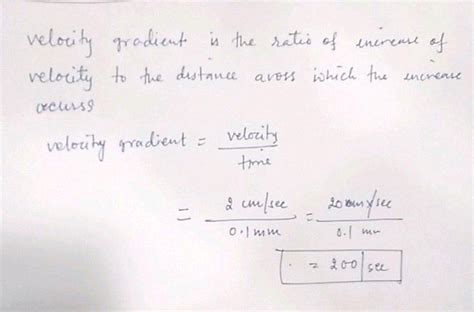 velocity gradient is the ratio of increase of
velocity to the distance avoss which the increase
occurs
velocity gradient = velocity / time
= 2 cm/sec / 0.1 mm = 20 mm/sec / 0.1 mm
= 200 sec